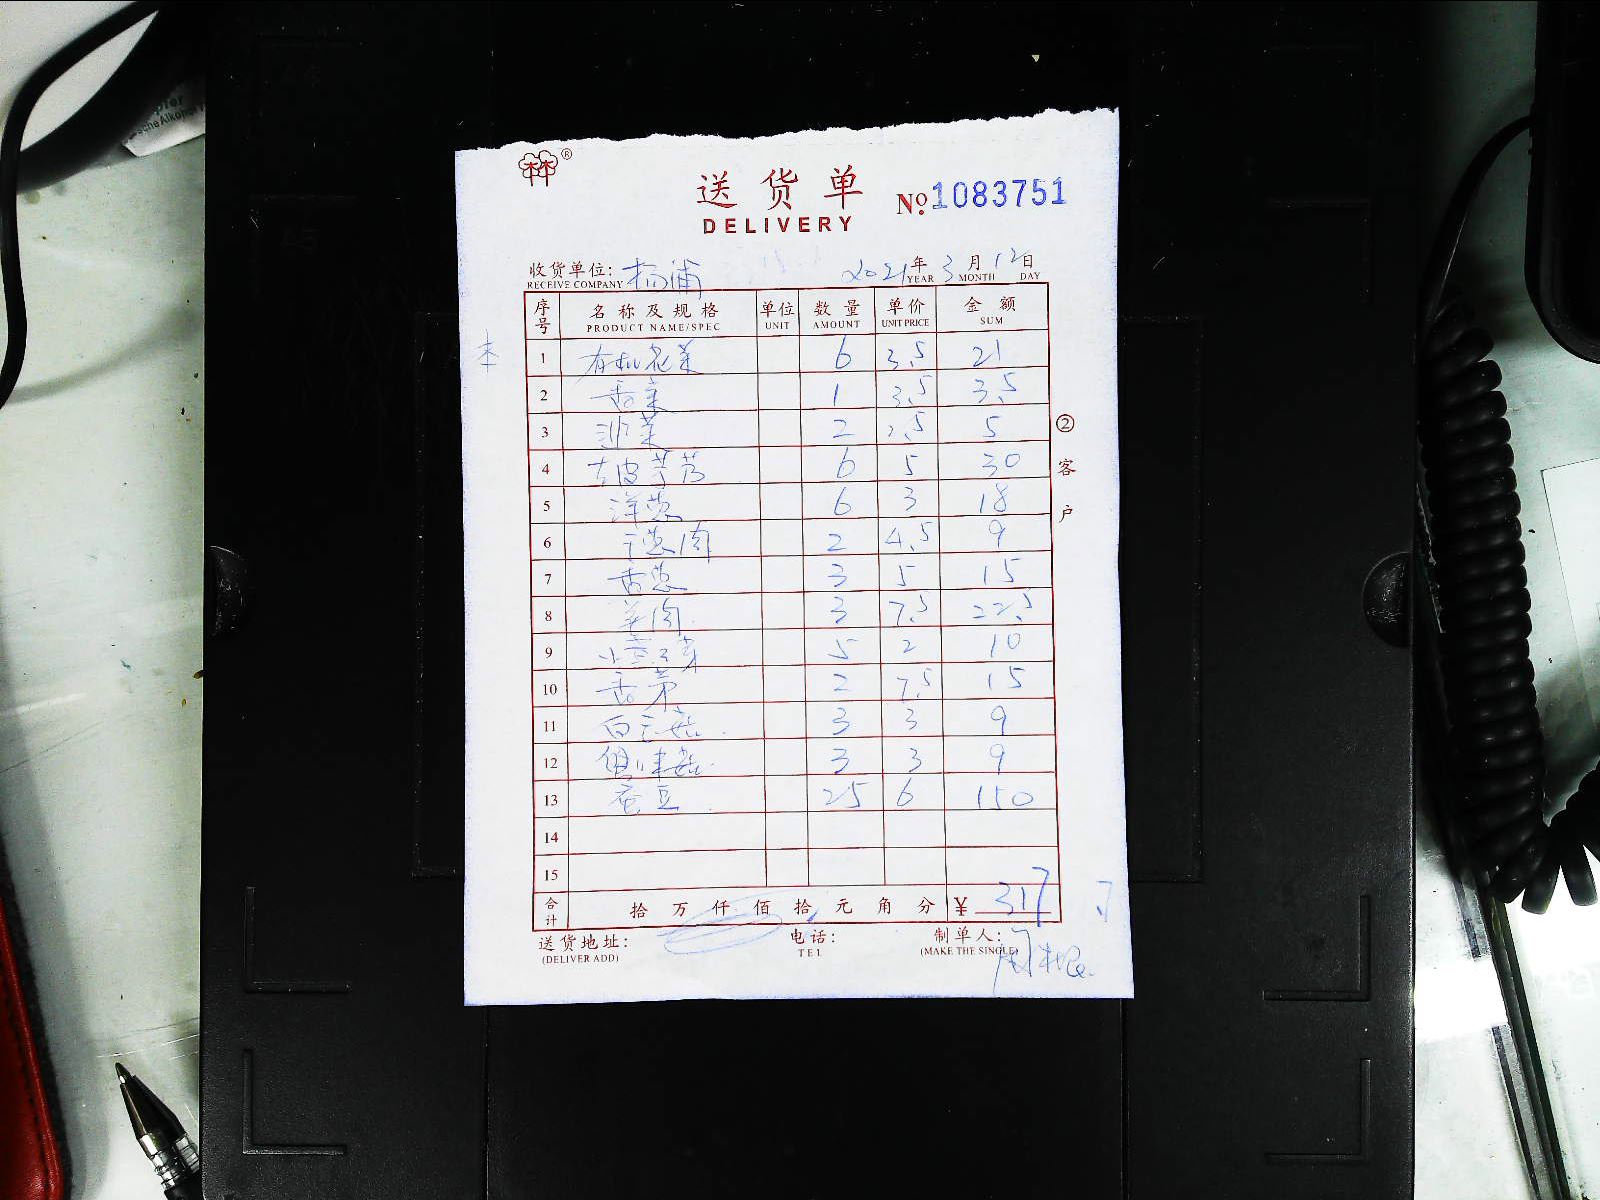 pfer
sche Alkoho
A4
A5
®
送货单
DELIVERY
№1083751
收货单位: 杨浦 2021年3月12日
RECEIVE COMPANY YEAR MONTH DAY
序号 名称及规格 单位 数量 单价 金额
PRODUCT NAME/SPEC UNIT AMOUNT UNIT PRICE SUM
1 有机花菜 6 3.5 21
2 香菜 1 3.5 3.5
3 韭菜 2 2.5 5
4 去皮芋艿 6 5 30
5 洋葱 6 3 18
6 干葱肉 2 4.5 9
7 香葱 3 5 15
8 羊肉 3 7.5 22.5
9 小豆芽 5 2 10
10 香茅 2 7.5 15
11 白玉菇 3 3 9
12 蟹味菇 3 3 9
13 蚕豆 25 6 150
14
15
合计 拾万仟佰拾元角分 ¥ 317
②客户
送货地址: 电话: 制单人:
(DELIVER ADD) TEL (MAKE THE SINGLE)